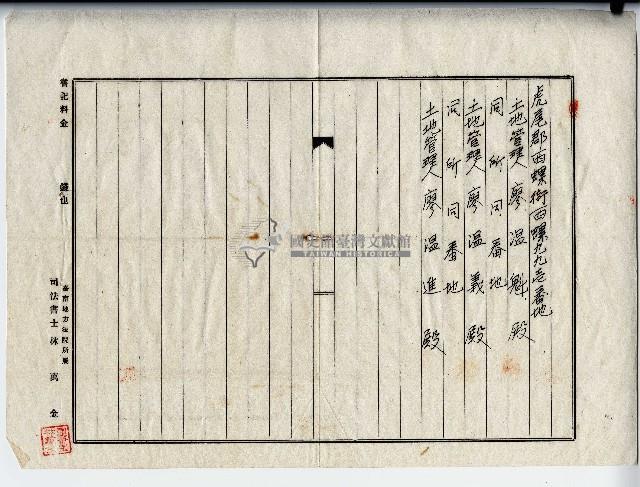 虎尾郡西螺街西螺九九壱番地
土地管理人 廖温魁 殿
同所同番地
土地管理人 廖温義 殿
同所同番地
土地管理人 廖温進 殿
國史館臺灣文獻館
TAIWAN HISTORICA
書記料金 錢也
臺南地方法院所屬
司法書士 林萬金